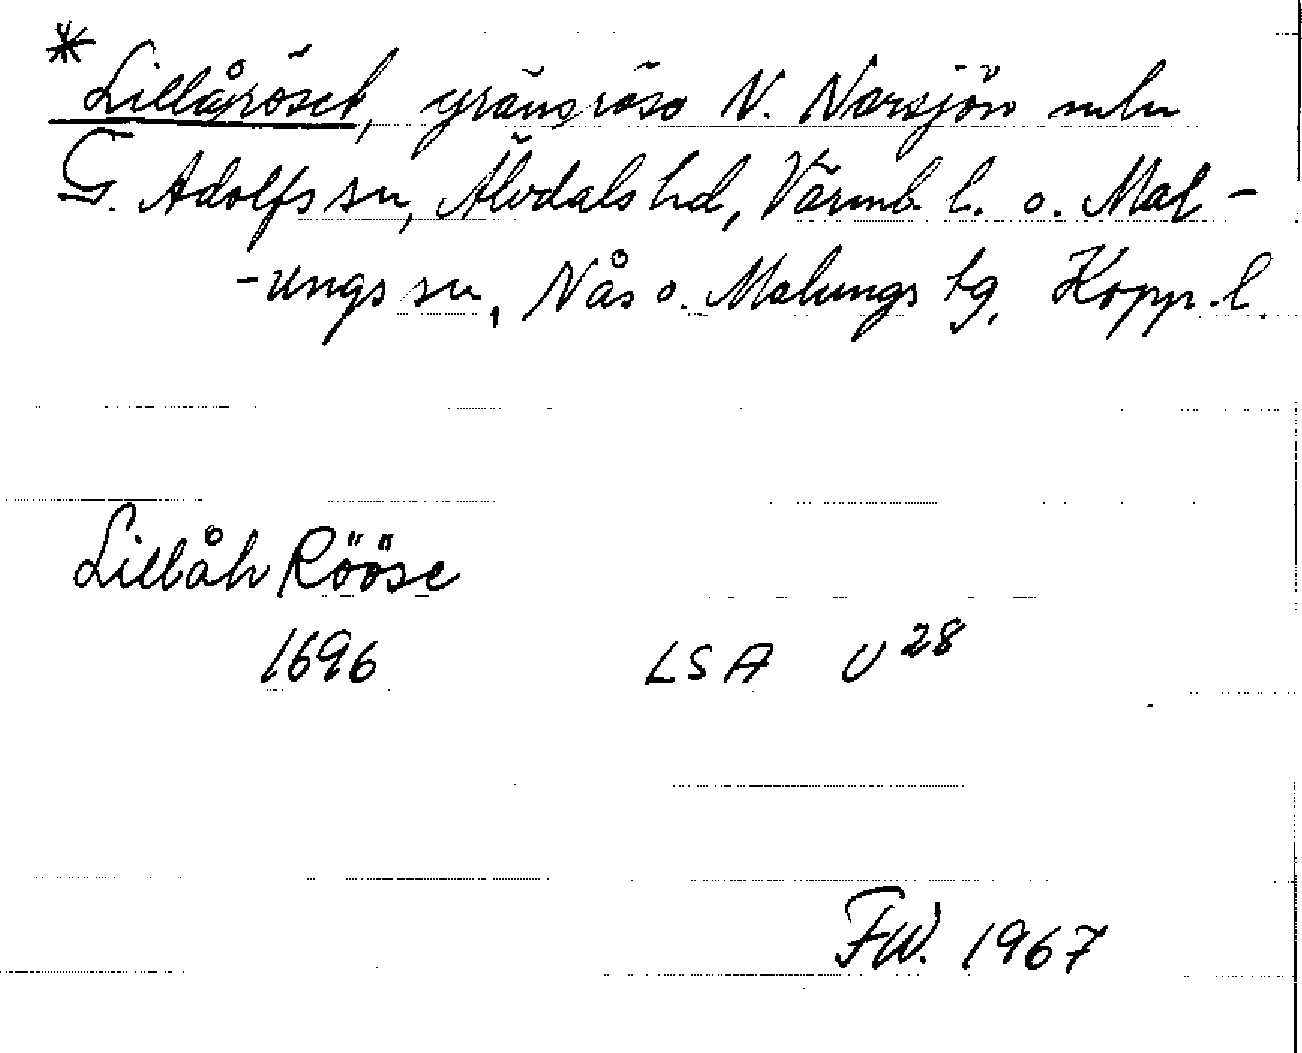 * Lillåröset, gränsröse N. Narsjön mln
G. Adolfs sn, Älvdals hd, Värml. l. o. Mal-
-ungs sn, Nås o. Malungs tg, Kopp. l.
Lillåh Rööse
1696 LSA U 28
FW. 1967